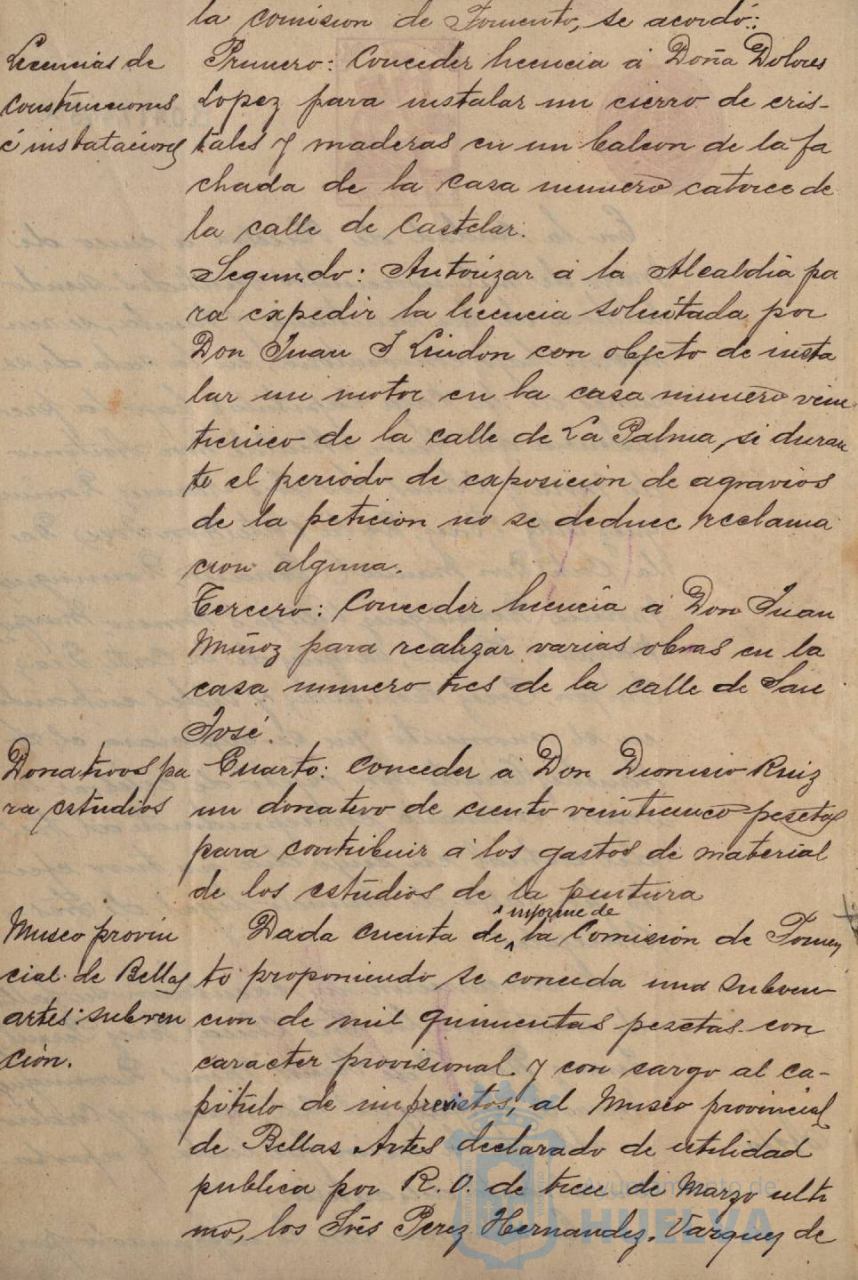 la comision de Fomento, se acordó:
Licencias de
construcciones
é instalaciones
Primero: Conceder licencia á Doña Dolores
Lopez para instalar un cierro de cris-
tales y maderas en un balcon de la fa
chada de la casa numero catorce de
la calle de Castelar.
Segundo: Autorizar á la Alcaldia pa
ra expedir la licencia solicitada por
Don Juan J Lindon con objeto de insta
lar un motor en la casa numero vein
ticinco de la calle de La Palma, si duran
te el periodo de exposición de agravios
de la peticion no se deduce reclama
cion alguna.
Tercero: Conceder licencia á Don Juan
Muñoz para realizar varias obras en la
casa numero tres de la calle de San
José.
Donativos pa
ra estudios
Cuarto: Conceder á Don Dionisio Ruiz
un donativo de ciento veinticinco pesetas
para contribuir á los gastos de material
de los estudios de la pintura
Museo provin
cial de Bellas
artes: subven
ción.
Dada cuenta de informe de la Comisión de Fomen
to proponiendo se conceda una subven
cion de mil quinientas pesetas con
caracter provisional y con cargo al ca-
pitulo de imprevistos, al Museo provincial
de Bellas Artes declarado de utilidad
publica por R. O. de trece de Marzo ulti
mo, los Srés Perez Hernandez, Vazquez de
Ayuntamiento de
HUELVA